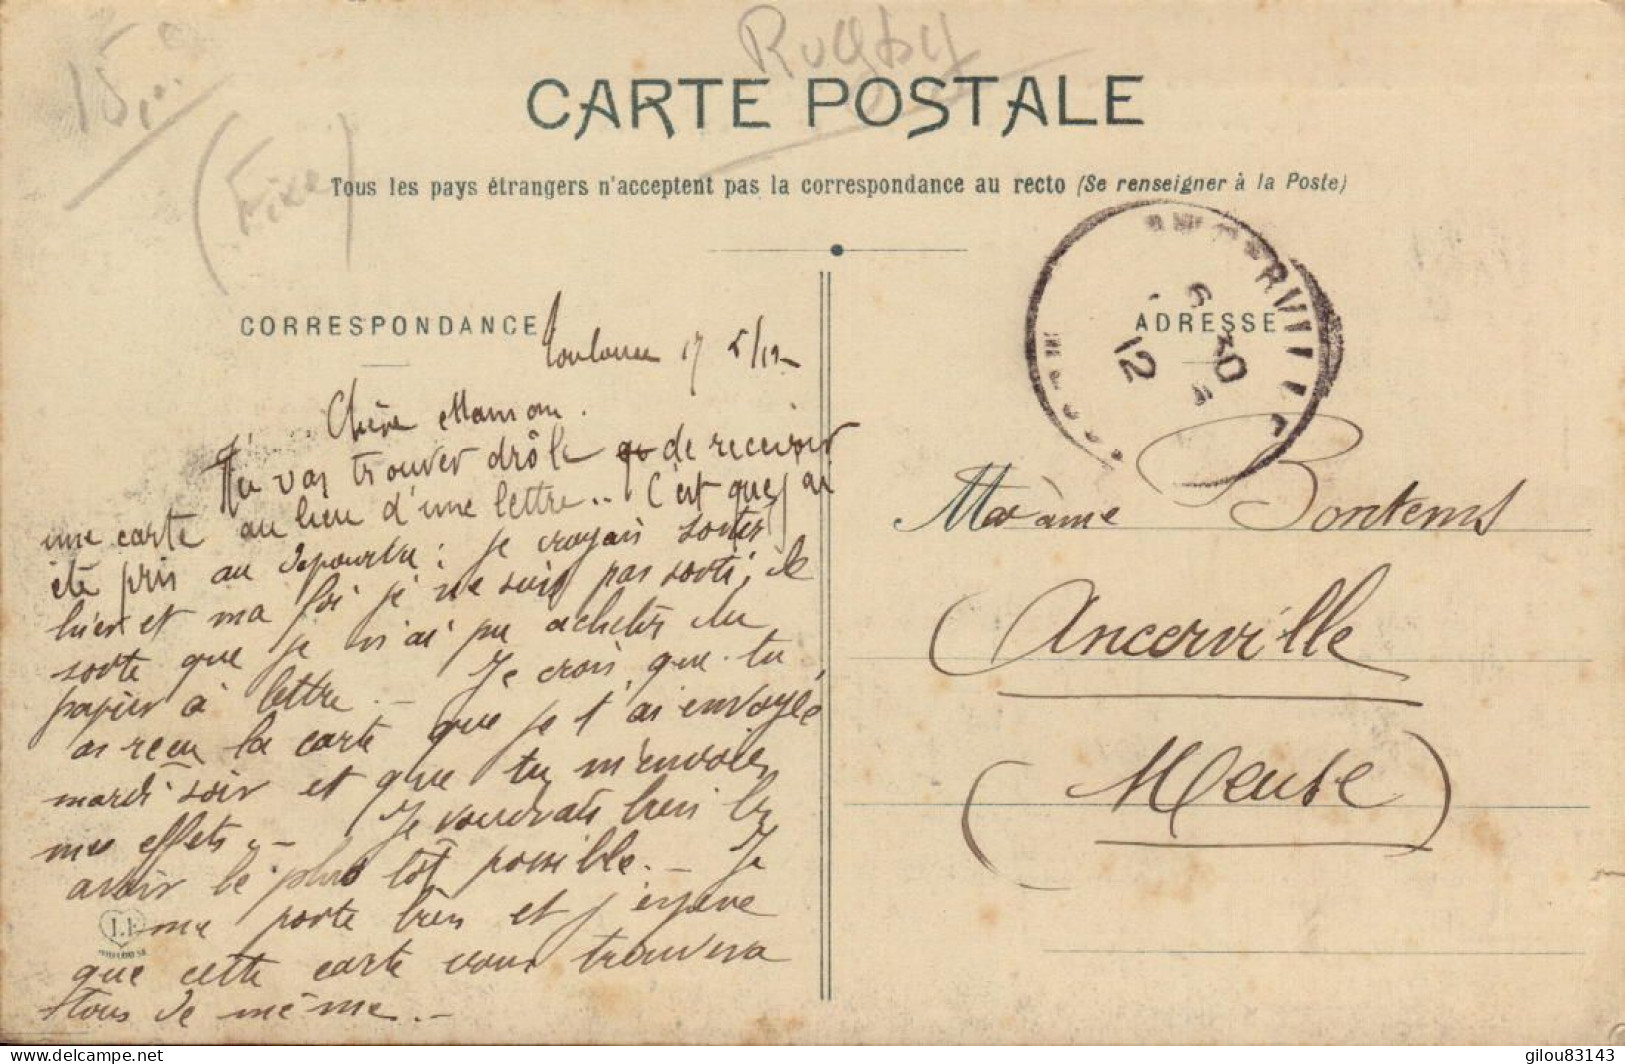 15,00
(Fixe)
Rugby
CARTE POSTALE
Tous les pays étrangers n'acceptent pas la correspondance au recto (Se renseigner à la Poste)
CORRESPONDANCE
ADRESSE
RVILLE
6 30
12
Toulouse 17 5/12
Chère Maman.
Tu vas trouver drôle de recevoir
une carte au lieu d'une lettre.. C'est que j'ai
été pris au dépourvu : je croyais sortir
hier et ma foi je ne suis pas sorti, de
sorte que je n'ai pu acheter du
papier à lettre. - Je crois que tu
as reçu la carte que je t'ai envoyée
mardi soir et que tu m'envoies
mes effets. - Je voudrais bien les
avoir le plus tôt possible. - Je
me porte bien et j'espère
que cette carte vous trouvera
tous de même. -
Madame Bontems
Ancerville
(Meuse)
delcampe.net
gilou83143